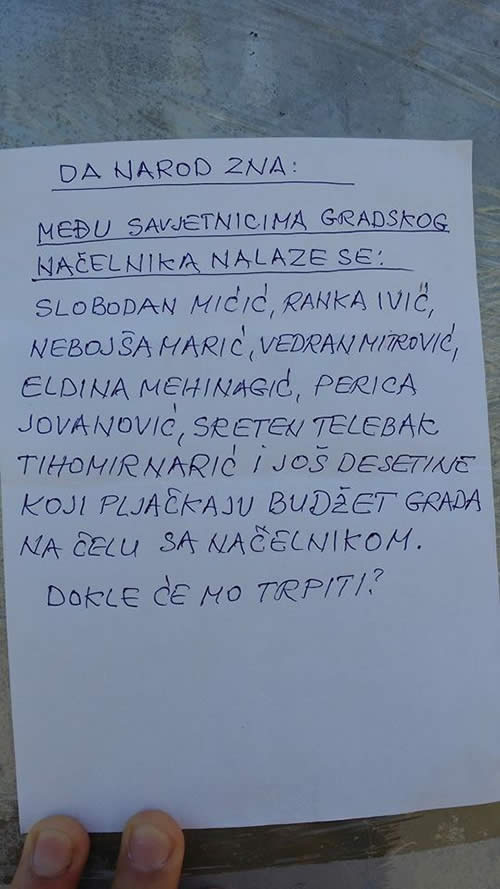 DA NAROD ZNA:
MEĐU SAVJETNICIMA GRADSKOG
NAČELNIKA NALAZE SE:
SLOBODAN MIĆIĆ, RANKA IVIĆ,
NEBOJŠA MARIĆ, VEDRAN MITROVIĆ,
ELDINA MEHINAGIĆ, PERICA
JOVANOVIĆ, SRETEN TELEBAK
TIHOMIR NARIĆ I JOŠ DESETINE
KOJI PLJAČKAJU BUDŽET GRADA
NA ČELU SA NAČELNIKOM.
DOKLE ĆE MO TRPITI?